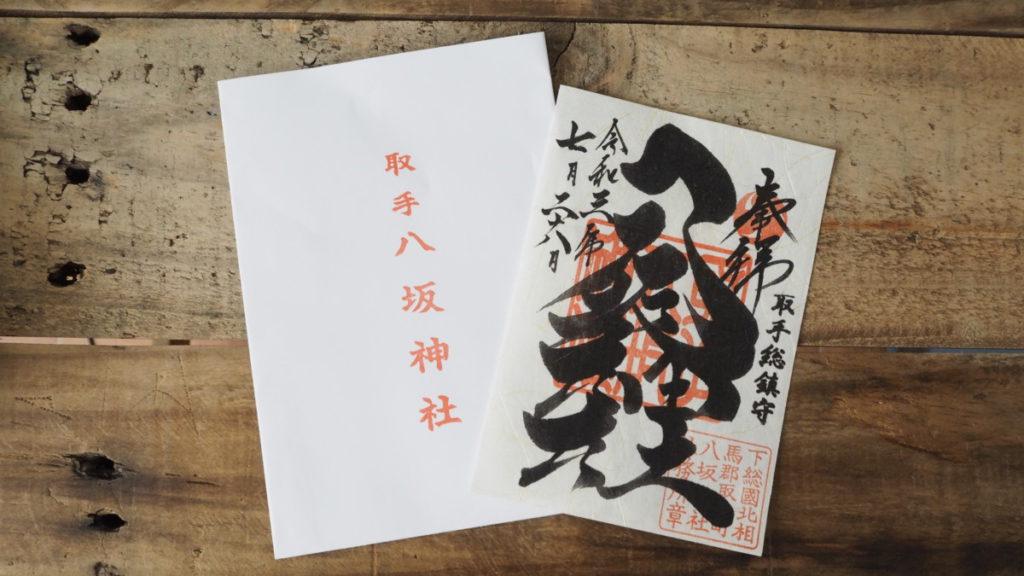 取手八坂神社
奉拝
取手総鎮守
令和三年
七月二十八日
下総國北相
馬郡取町
八坂社
務所章